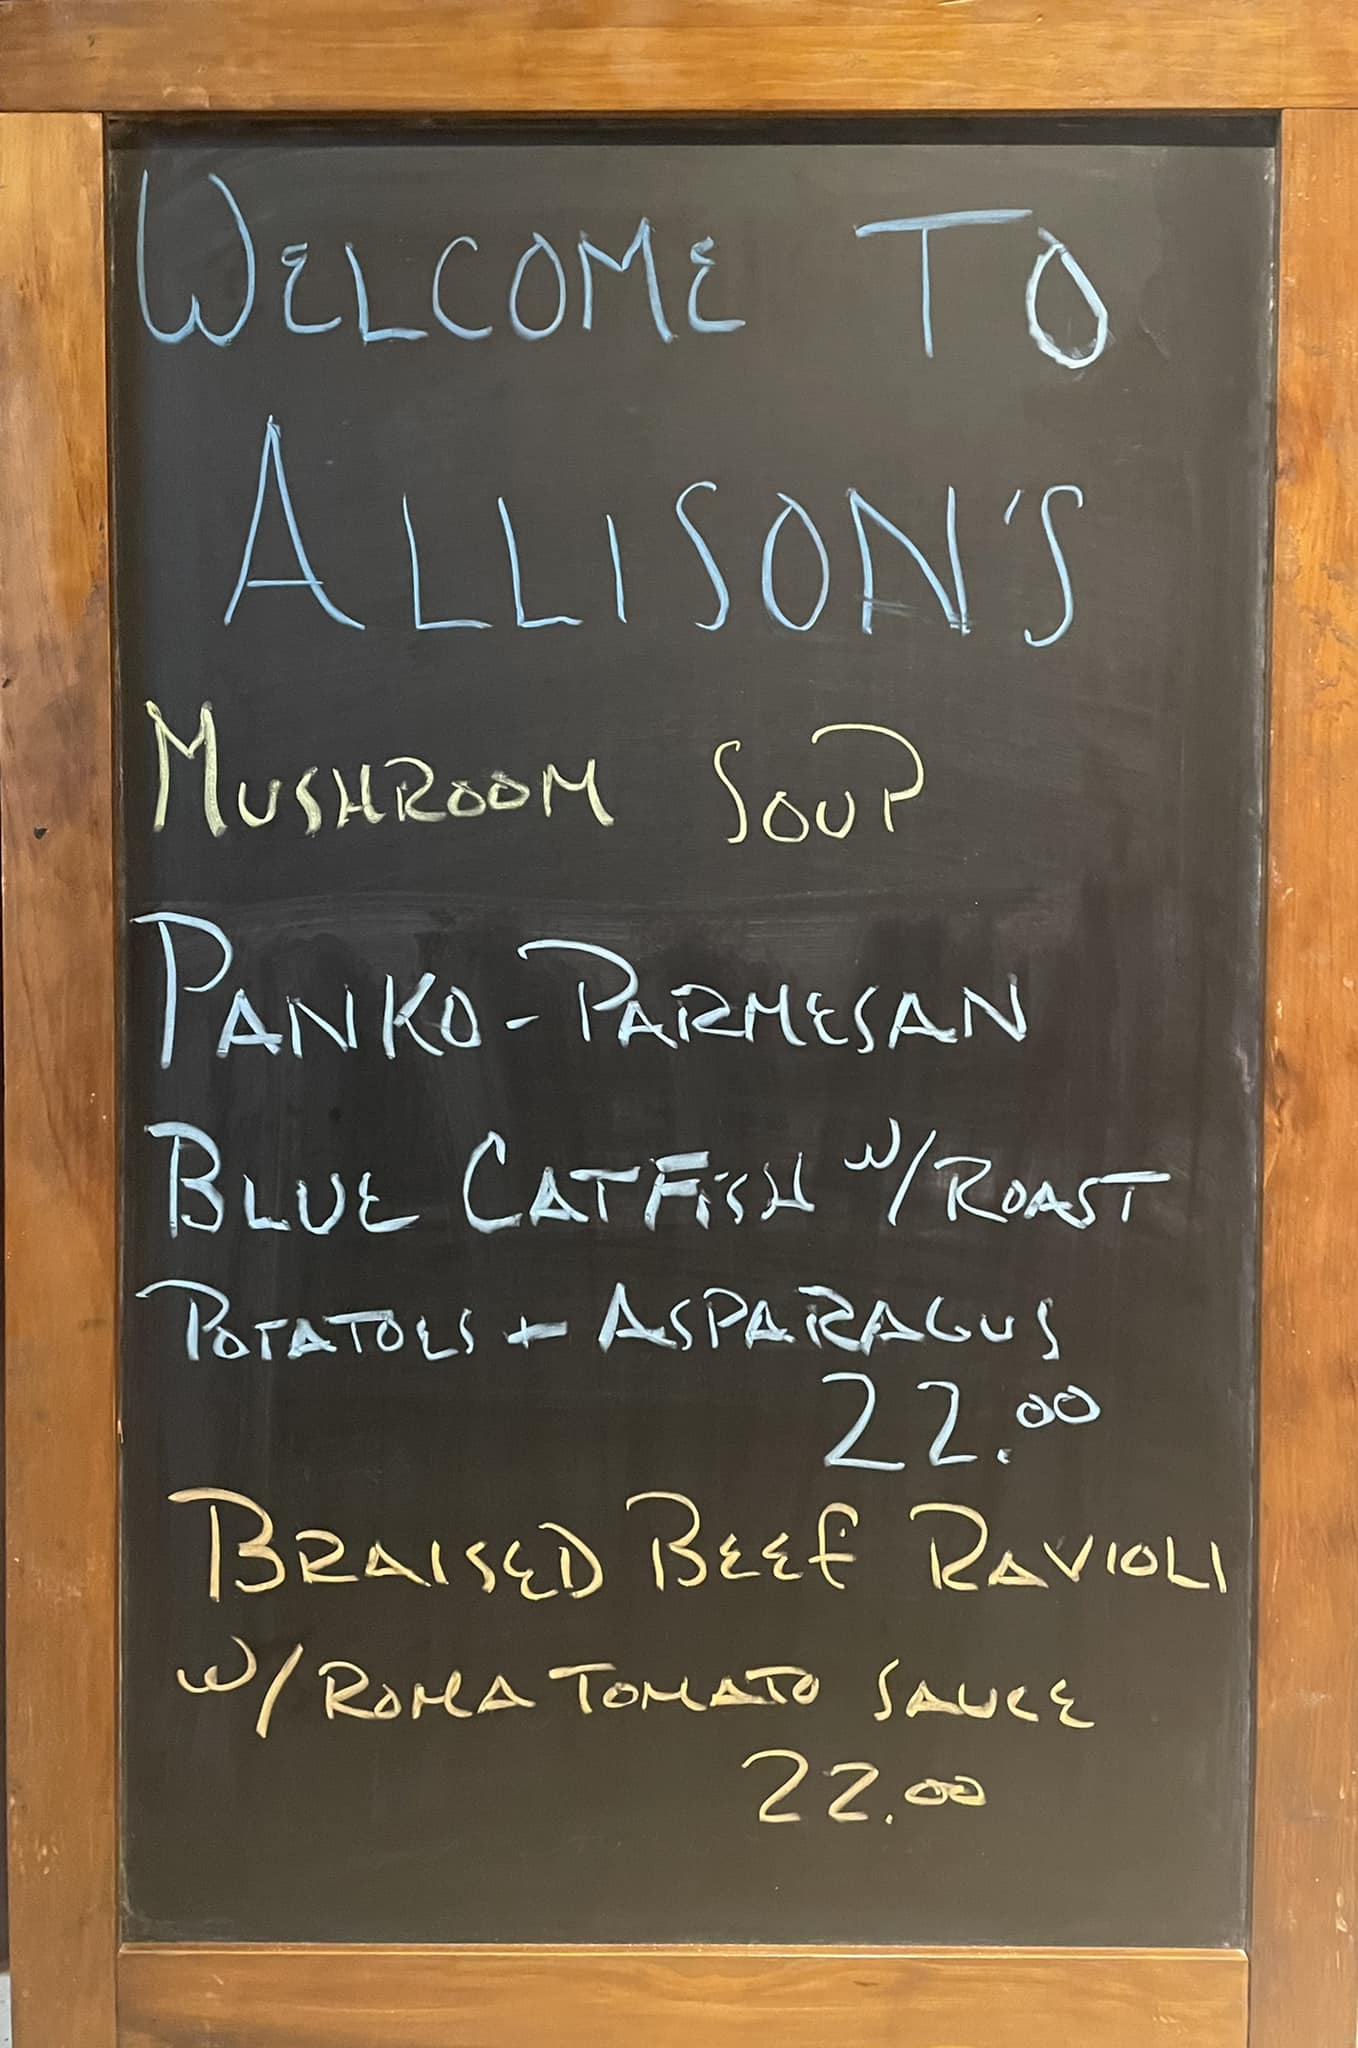 WELCOME TO
ALLISON'S
MUSHROOM SOUP
PANKO-PARMESAN
BLUE CATFISH W/ROAST
POTATOES + ASPARAGUS
22.00
BRAISED BEEF RAVIOLI
W/ROMA TOMATO SAUCE
22.00